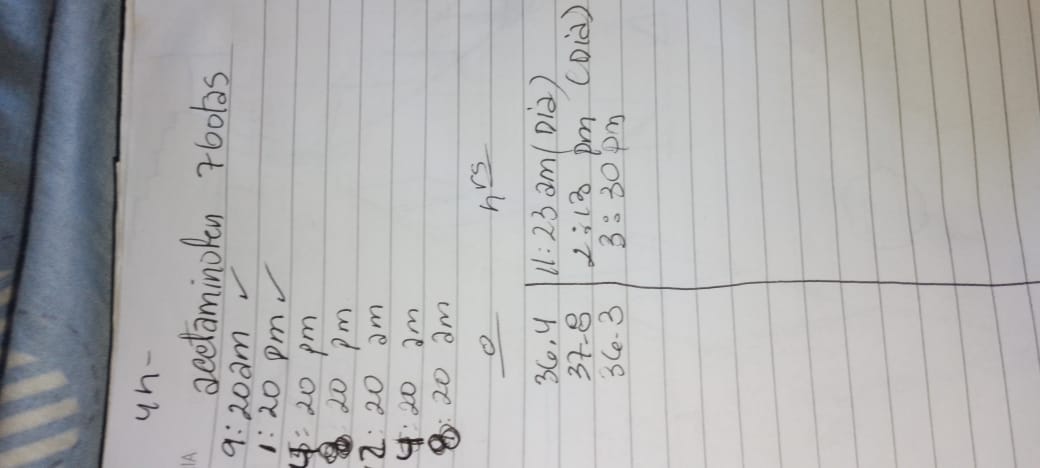 1A
4h-
acetaminofen 7 gotas
9:20 am ✓
1:20 pm ✓
:20 pm
:20 pm
12:20 am
4:20 am
8:20 am
o hrs
36.4 11:23 am (Dia)
37.8 2:13 pm (Dia)
36.3 3:30 pm